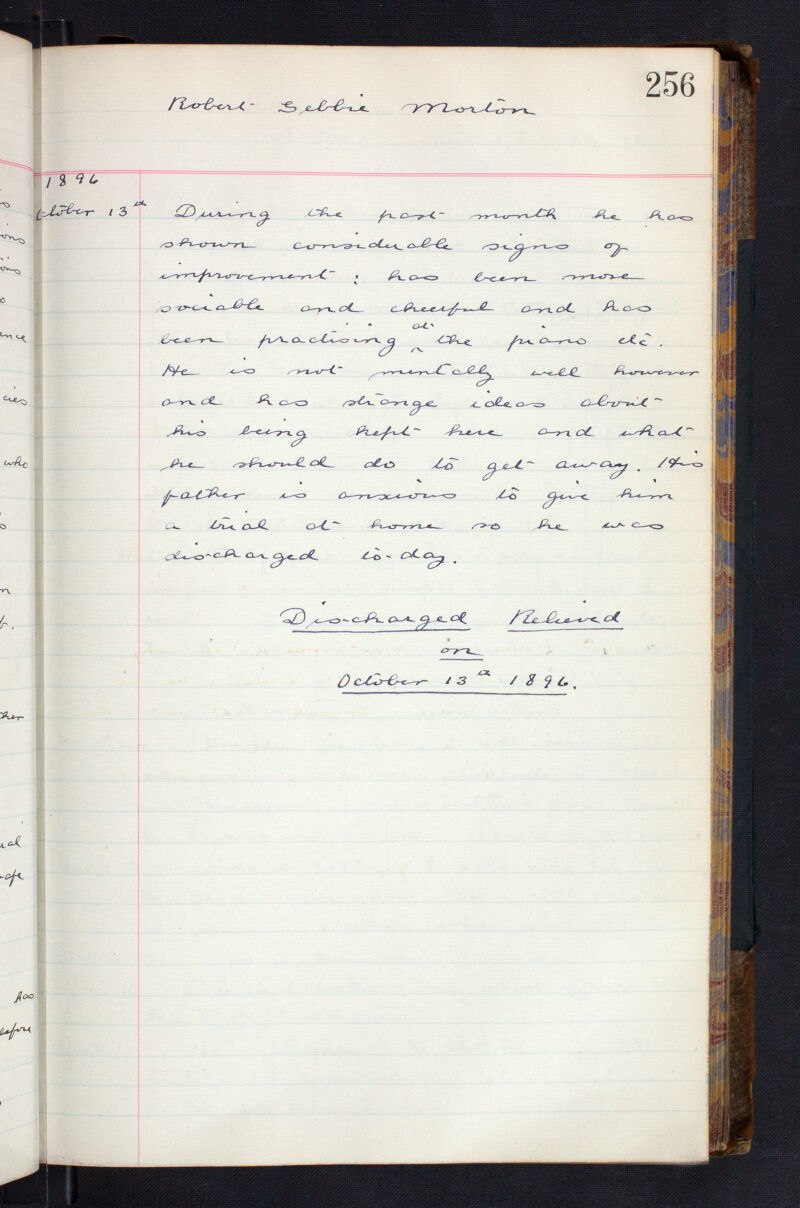 256
Robert Gebbie Morton
1896
October 13th During the past month he has
shown considerable signs of
improvement: has been more
sociable and cheerful and has
been practising at the piano etc.
He is not mentally well however
and has strange ideas about
his being kept here and what
he should do to get away. His
father is anxious to give him
a trial at home so he was
discharged to-day.
Discharged Relieved
on
October 13th 1896.